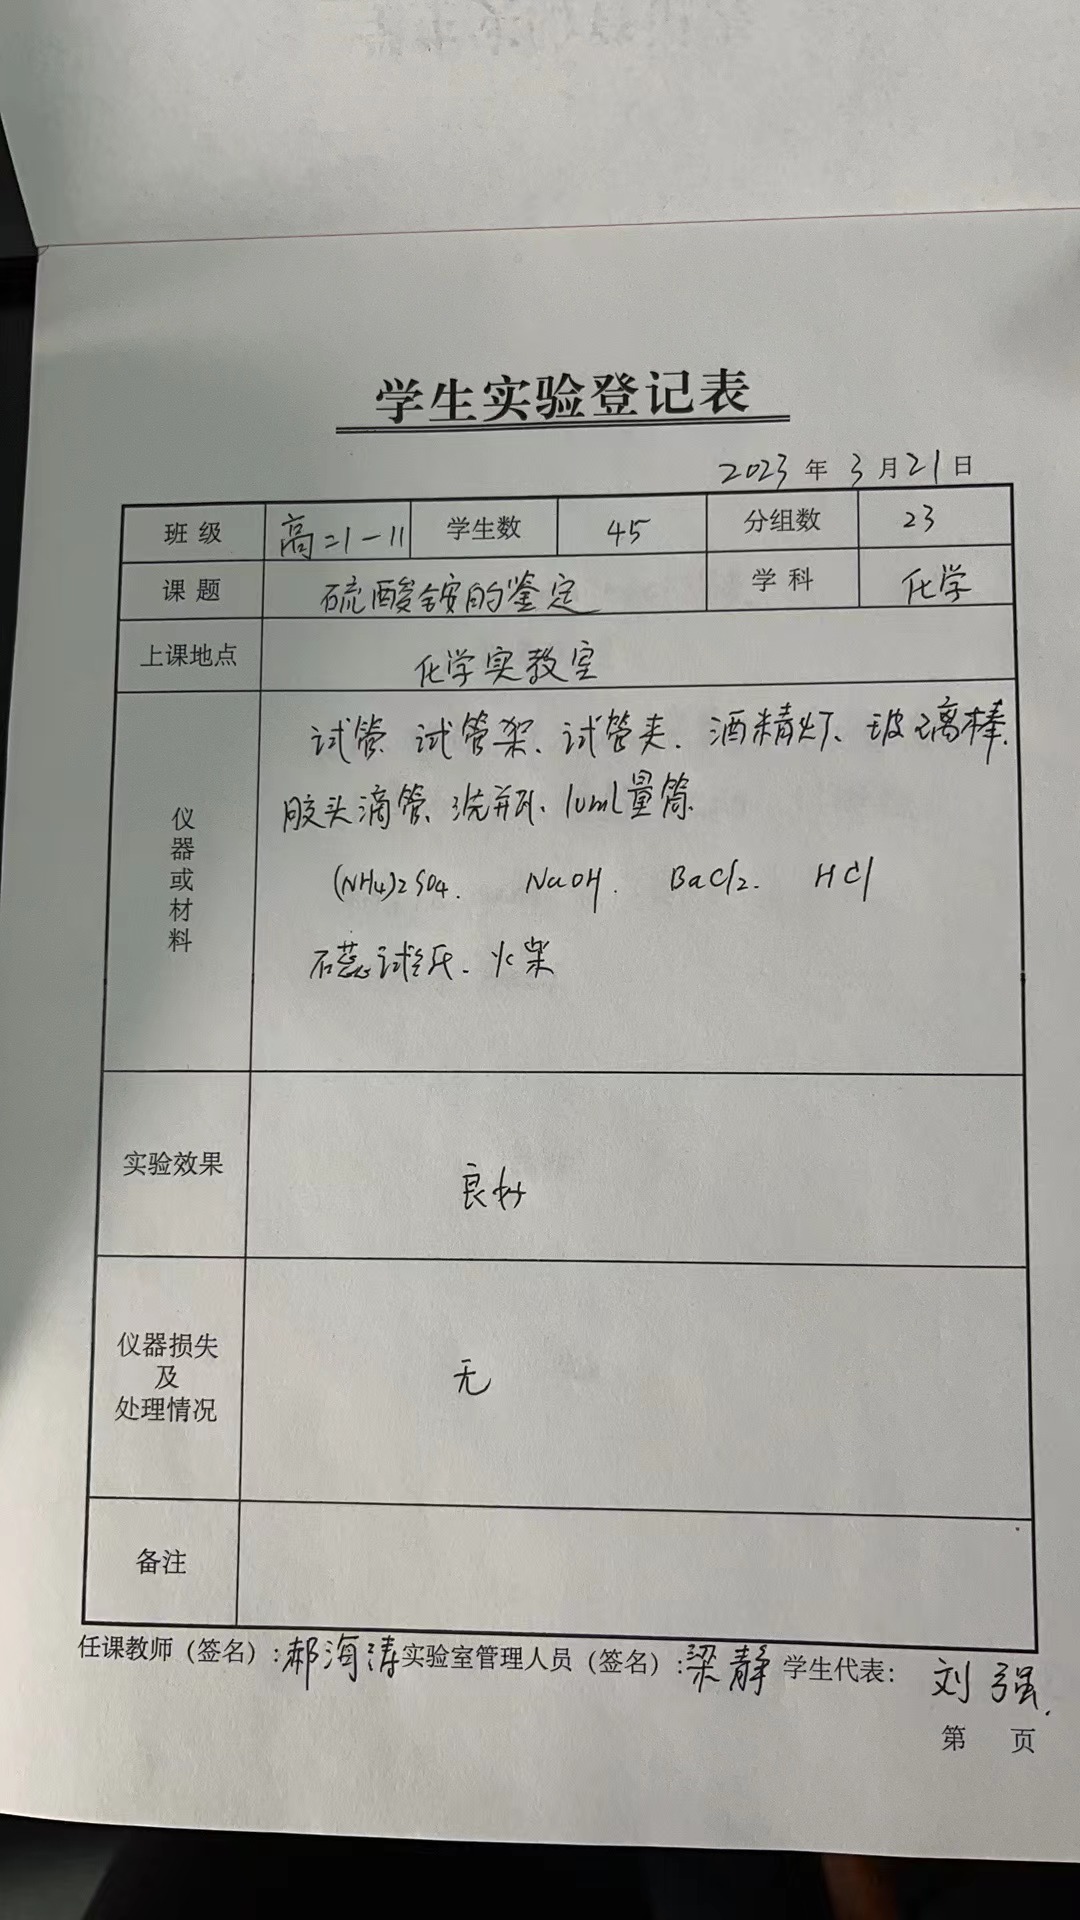 学生实验登记表
2023 年 3 月 21 日
班 级 高二1-11 学生数 45 分组数 23
课 题 硫酸铵的鉴定 学 科 化学
上课地点 化学实教室
仪器或材料
试管、试管架、试管夹、酒精灯、玻璃棒、
胶头滴管、洗瓶、10ml量筒
(NH4)2SO4. NaOH. BaCl2. HCl
石蕊试纸、火柴
实验效果 良好
仪器损失
及
处理情况
无
备注
任课教师（签名）:郝海涛 实验室管理人员（签名）:梁静 学生代表: 刘强
第 页